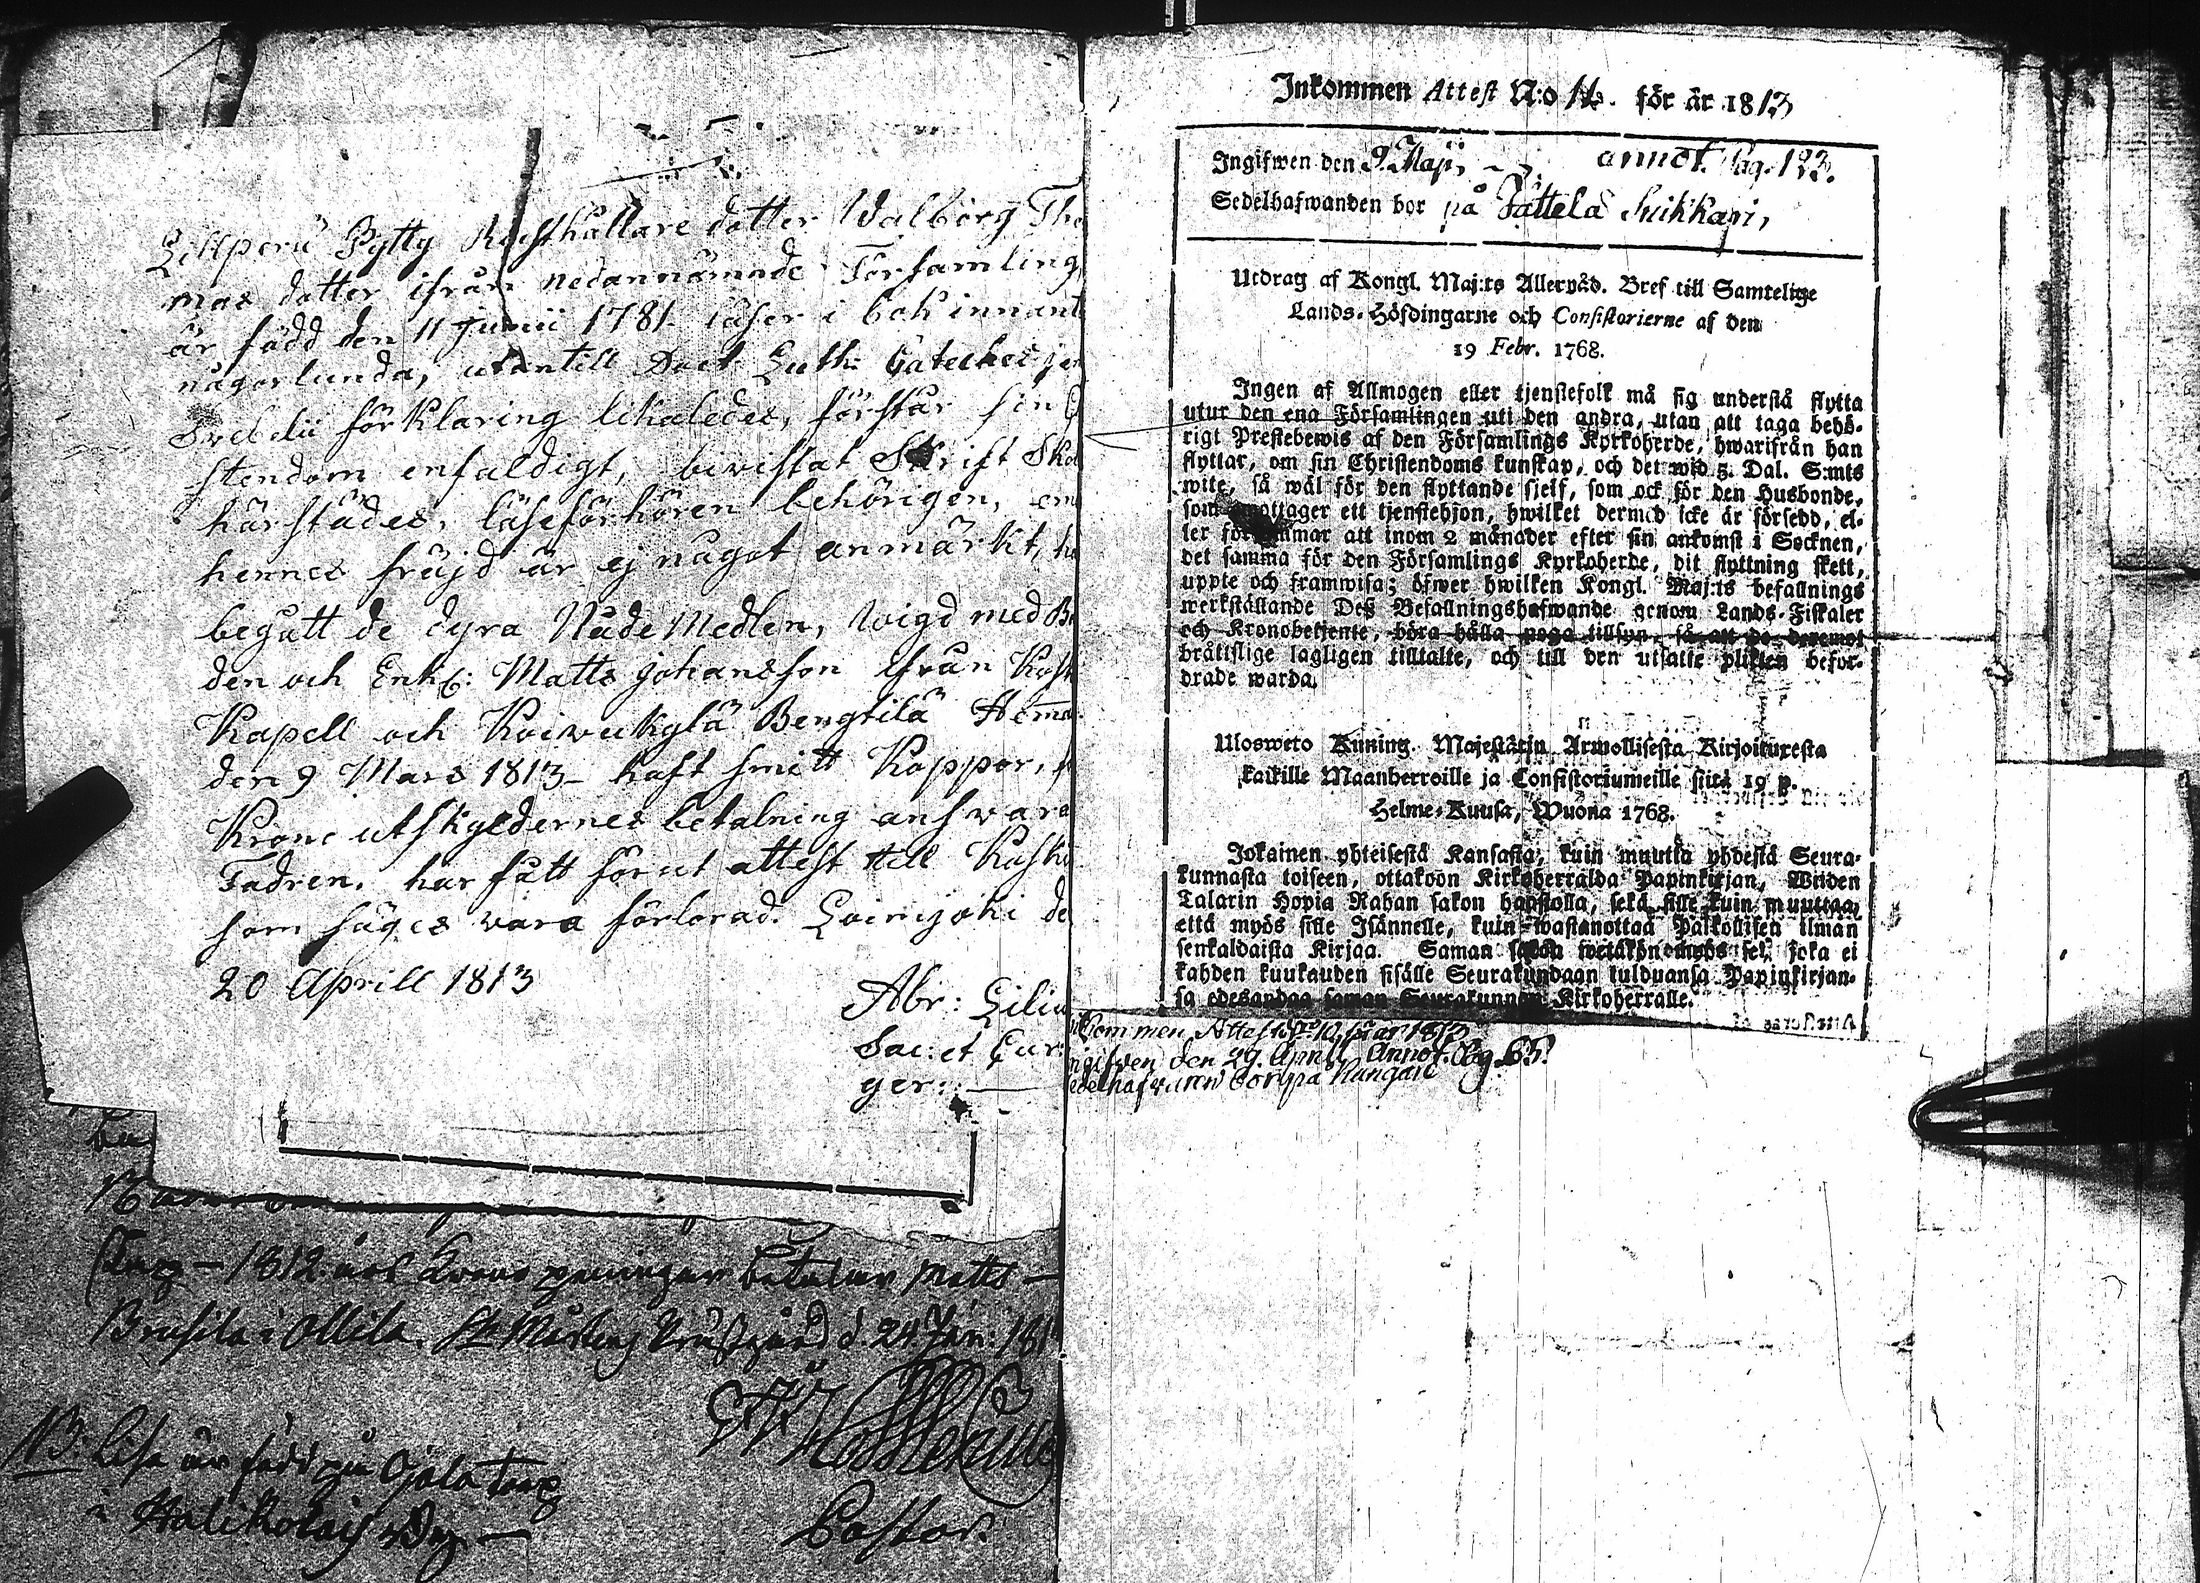 Pytty Rusthållare dotter Walborg Tho
mas dotter ifrån nedannämnde Församling,
är född den 11 Junii 1781. läser i bok innant
någorlunda, utantill Doct. Luth: Cateches jem
Svebelii förklaring likaledes, förstår sin
stendom enfaldigt, bivistat Skrift Skol
härstädes, läseförhören behörigen, om
hennes fräjd är ej något anmärkt, ha
begått de dyra Nåde Medlen, Wigd med
den och Enkl: Matts Johansson ifrån Kosk
Kapell och Koivukylä Bengtilä
den 9 Mars 1813 haft smitt Koppor,
Krono utskyldernes betalning answara
Fadren. har fått förut attest till Koski
som säges vara förlorad. Loimijoki de
20 Aprill 1813
Abr: Liliu
Sac: et Cur:
ger:
Torp – 1812 års Krono penningar betalar Matts –
Brusila i Ollila. St Mårtens Prästgård d. 24 Jan: 181
Pastor.
NB: Lisa är född på Ojala torp
i Halikko
Inkommen Attest N:o 14. för år 1813
Ingifwen den 9. Maji, annot. Pag. 123.
Sedelhafwanden bor på Tättelä Suikkari,
Utdrag af Kongl. Maj:ts Allernåd. Bref till Samtelige
Lands-Höfdingarne och Consistorierne af den
19 Febr. 1768.
Ingen af Allmogen eller tjenstefolk må sig understå flytta
utur den ena Församlingen uti den andra, utan att taga behö-
rigt Prestebewis af den Församlings Kyrkoherde, hwarifrån han
flyttar, om sin Christendoms kunskap, och det wid 3. Dal. S:mts
wite, så wäl för den flyttande sjelf, som ock för den Husbonde,
som emottager ett tjenstehjon, hwilket dermed icke är försedd, el-
ler försummar att inom 2 månader efter sin ankomst i Socknen,
det samma för den Församlings Kyrkoherde, dit flyttning skett,
uppte och framwisa; öfwer hwilken Kongl. Maj:ts befallnings
werkställande Deß Befallningshafwande genom Lands-Fiskaler
och Kronobetjente, böra hålla noga tillsyn, så att de deremot
bråttslige lagligen tilltalte, och till den utsatte plikten befor-
drade warda.
Uloswero Kuning. Majestätin Armollisesta Kirjoituxesta
kaikille Maanherroille ja Consistoriumeille siitä 19 p.
Helme-Kuusa, Wuona 1768.
Jokainen yhteisestä Kansasta, kuin muutta yhdestä Seura-
kunnasta toiseen, ottakoon Kirkoherralda Papinkirjan, Wiiden
Talarin Hopia Rahan sakon haastolla, sekä sille kuin muuttaa,
että myös sille Isännelle, kuin wastanottaa Palkollisen ilman
senkaldaista Kirjaa. Saman sakon wetäkön myös se, joka ei
kahden kuukauden sisälle Seurakundaan tulduansa Papinkirjan-
sa edesandaa saman Seurakunnan Kirkoherralle.
kommen Attest N:o 10. för år 1813
ngifven den 29. April Annot. Pag. 65.